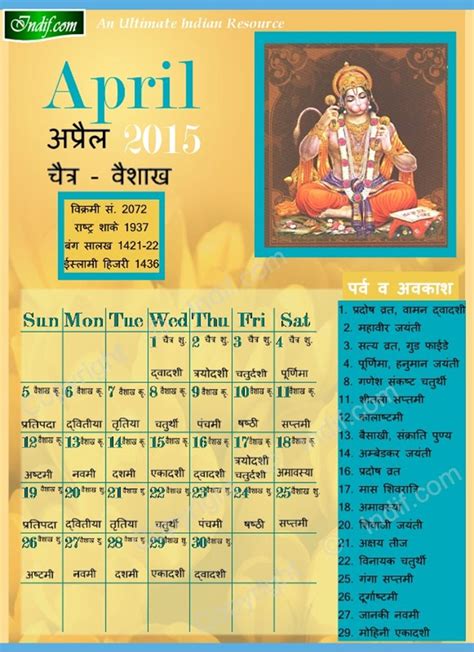 Indif.com
An Ultimate Indian Resource
April
अप्रैल 2015
चैत्र - वैशाख
विक्रमी सं. 2072
राष्ट्र शाके 1937
बंग सालख 1421-22
ईस्लामी हिजरी 1436
पर्व व अवकाश
1. प्रदोष व्रत, वामन द्वादशी
2. महावीर जयंती
3. सत्य व्रत, गुड फाईडे
4. पूर्णिमा, हनुमान जयंती
8. गणेश संकष्ट चतुर्थी
11. शीतला सप्तमी
12. कालाष्टमी
13. बैसाखी, संक्रांति पुण्य
14. अम्बेडकर जयंती
16. प्रदोष व्रत
17. मास शिवरात्रि
18. अमावस्या
20. शिवाजी जयंती
21. अक्षय तीज
22. विनायक चतुर्थी
25. गंगा सप्तमी
26. दूर्गाष्टमी
27. जानकी नवमी
29. मोहिनी एकादशी
Sun Mon Tue Wed Thu Fri Sat
1 चैत्र शु. 2 चैत्र शु. 3 चैत्र शु. 4 चैत्र शु.
द्वादशी त्रयोदशी चतुर्दशी पूर्णिमा
5 वैशाख कृ. 6 वैशाख कृ. 7 वैशाख कृ. 8 वैशाख कृ. 9 वैशाख कृ. 10 वैशाख कृ. 11 वैशाख कृ.
प्रतिपदा द्वितीया तृतिया चतुर्थी पंचमी षष्ठी सप्तमी
12 वैशाख कृ. 13 वैशाख कृ. 14 वैशाख कृ. 15 वैशाख कृ. 16 वैशाख कृ. 17 वैशाख कृ. 18 वैशाख कृ.
अष्टमी नवमी दशमी एकादशी द्वादशी त्रयोदशी चतुर्दशी अमावस्या
19 वैशाख शु. 20 वैशाख शु. 21 वैशाख शु. 22 वैशाख शु. 23 वैशाख शु. 24 वैशाख शु. 25 वैशाख शु.
प्रतिपदा द्वितीया तृतिया चतुर्थी पंचमी षष्ठी सप्तमी
26 वैशाख शु. 27 वैशाख शु. 28 वैशाख शु. 29 वैशाख शु. 30 वैशाख शु.
अष्टमी नवमी दशमी एकादशी द्वादशी